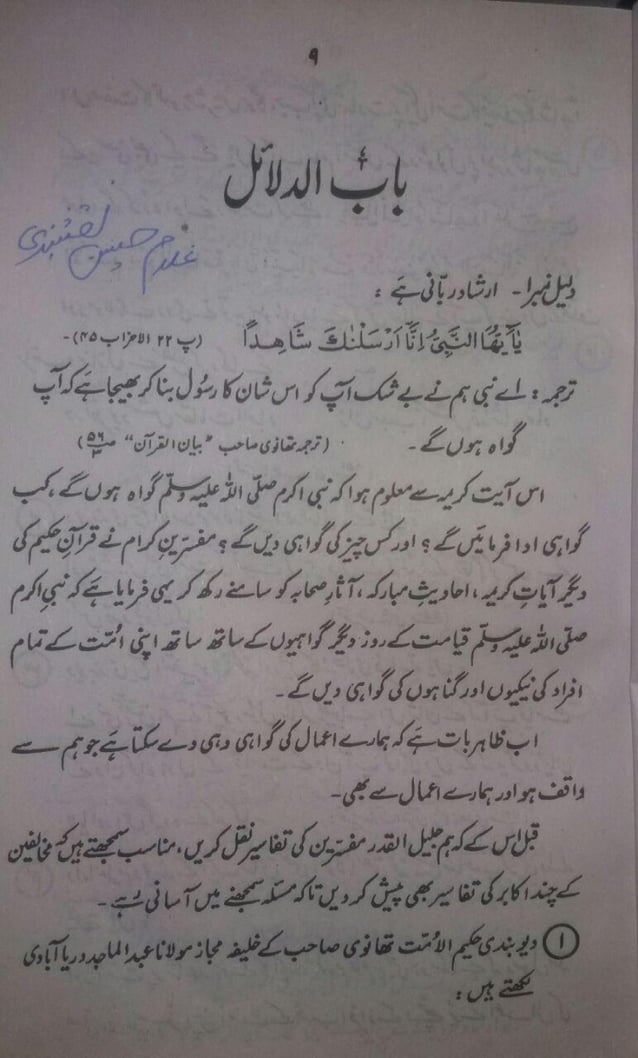 ۹
بابُ الدلائل
غلام حسین نقشبندی
دلیل نمبر۱- ارشادِ ربّانی ہَے :
یٰۤاَیُّهَا النَّبِیُّ اِنَّاۤ اَرْسَلْنٰكَ شَاهِدًا (پ ۲۲ الاحزاب ۴۵)-
ترجمہ : اَے نبی ہم نے بے شک آپ کو اس شان کا رسُول بنا کر بھیجا ہَے کہ آپ
گواہ ہوں گے - (ترجمہ تھانوی صاحب "بیان القرآن" ص۵۶/۳)
اس آیت کریمہ سے معلوم ہوا کہ نبی اکرم صلّی اللہ علیہ وسلّم گواہ ہوں گے ، کب
گواہی ادا فرمائیں گے ؟ اور کس چیز کی گواہی دیں گے ؟ مفسّرینِ کرام نے قرآنِ حکیم کی
دیگر آیاتِ کریمہ ، احادیثِ مبارکہ ، آثارِ صحابہ کو سامنے رکھ کر یہی فرمایا ہَے کہ نبیِ اکرم
صلّی اللہ علیہ وسلّم قیامت کے روز دیگر گواہیوں کے ساتھ ساتھ اپنی اُمّت کے تمام
افراد کی نیکیوں اور گناہوں کی گواہی دیں گے -
اب ظاہر بات ہَے کہ ہمارے اعمال کی گواہی وہی دے سکتا ہَے جو ہم سے
واقف ہو اور ہمارے اعمال سے بھی -
قبل اس کے کہ ہم جلیل القدر مفسّرین کی تفاسیر نقل کریں، مناسب سمجھتے ہیں کہ مخالفین
کے چند اکابر کی تفاسیر بھی پیش کر دیں تاکہ مسئلہ سمجھنے میں آسانی رہے -
(۱) دیوبندی حکیم الاُمّت تھانوی صاحب کے خلیفہ مجاز مولانا عبد الماجد دریا آبادی
لکھتے ہیں :